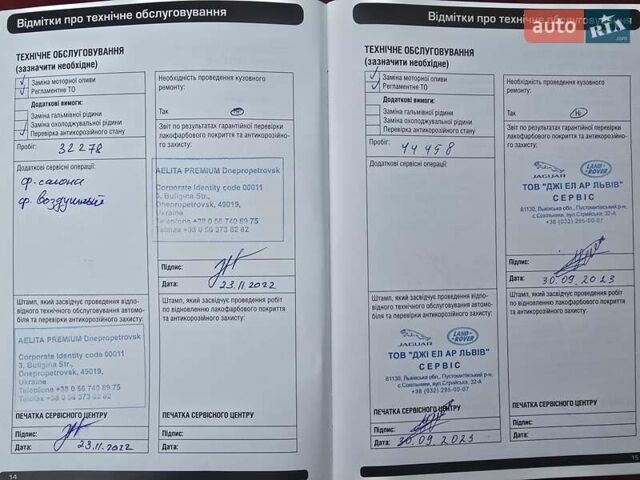 Відмітки про технічне обслуговування
ТЕХНІЧНЕ ОБСЛУГОВУВАННЯ
(зазначити необхідне)
Заміна моторної оливи
Регламентне ТО
Додаткові вимоги:
Заміна гальмівної рідини
Заміна охолоджувальної рідини
Перевірка антикорозійного стану
Пробіг: 32278
Додаткові сервісні операції:
ф. салона
ф. воздушный
Штамп, який засвідчує проведення відпо-
відного технічного обслуговування автомо-
біля та перевірки антикорозійного захисту:
AELITA PREMIUM Dnepropetrovsk
Corporate Identity code 00011
3, Buligina Str.,
Dnepropetrovsk, 49019,
Ukraine
Telephone +38 0 56 740 89 75
Telefax +38 0 56 373 82 82
ПЕЧАТКА СЕРВІСНОГО ЦЕНТРУ
Підпис:
Дата: 23.11.2022
14
Необхідність проведення кузовного
ремонту:
Так Ні
Звіт по результатах гарантійної перевірки
лакофарбового покриття та антикорозійно-
го захисту:
AELITA PREMIUM Dnepropetrovsk
Corporate Identity code 00011
3, Buligina Str.,
Dnepropetrovsk, 49019,
Ukraine
Telephone +38 0 56 740 89 75
Telefax +38 0 56 373 82 82
Підпис:
Дата: 23.11.2022
Штамп, який засвідчує проведення робіт
по відновленню лакофарбового покриття
та антикорозійного захисту:
Відмітки про технічне обслуговування
auto RIA
.com
ТЕХНІЧНЕ ОБСЛУГОВУВАННЯ
(зазначити необхідне)
Заміна моторної оливи
Регламентне ТО
Додаткові вимоги:
Заміна гальмівної рідини
Заміна охолоджувальної рідини
Перевірка антикорозійного стану
Пробіг: 44498
Додаткові сервісні операції:
Штамп, який засвідчує проведення відпо-
відного технічного обслуговування автомо-
біля та перевірки антикорозійного захисту:
JAGUAR
LAND-
ROVER
ТОВ "ДЖІ ЕЛ АР ЛЬВІВ"
СЕРВІС
81130, Львівська обл., Пустомитівський р-н,
с.Сокільники, вул.Стрийська, 32-А
+38 (032) 295-00-07
ПЕЧАТКА СЕРВІСНОГО ЦЕНТРУ
Підпис:
Дата: 30.09.2023
Необхідність проведення кузовного
ремонту:
Так Ні
Звіт по результатах гарантійної перевірки
лакофарбового покриття та антикорозійно-
го захисту:
JAGUAR
LAND-
ROVER
ТОВ "ДЖІ ЕЛ АР ЛЬВІВ"
СЕРВІС
81130, Львівська обл., Пустомитівський р-н,
с.Сокільники, вул.Стрийська, 32-А
+38 (032) 295-00-07
Підпис:
Дата: 30.09.2023
Штамп, який засвідчує проведення робіт
по відновленню лакофарбового покриття
та антикорозійного захисту:
15